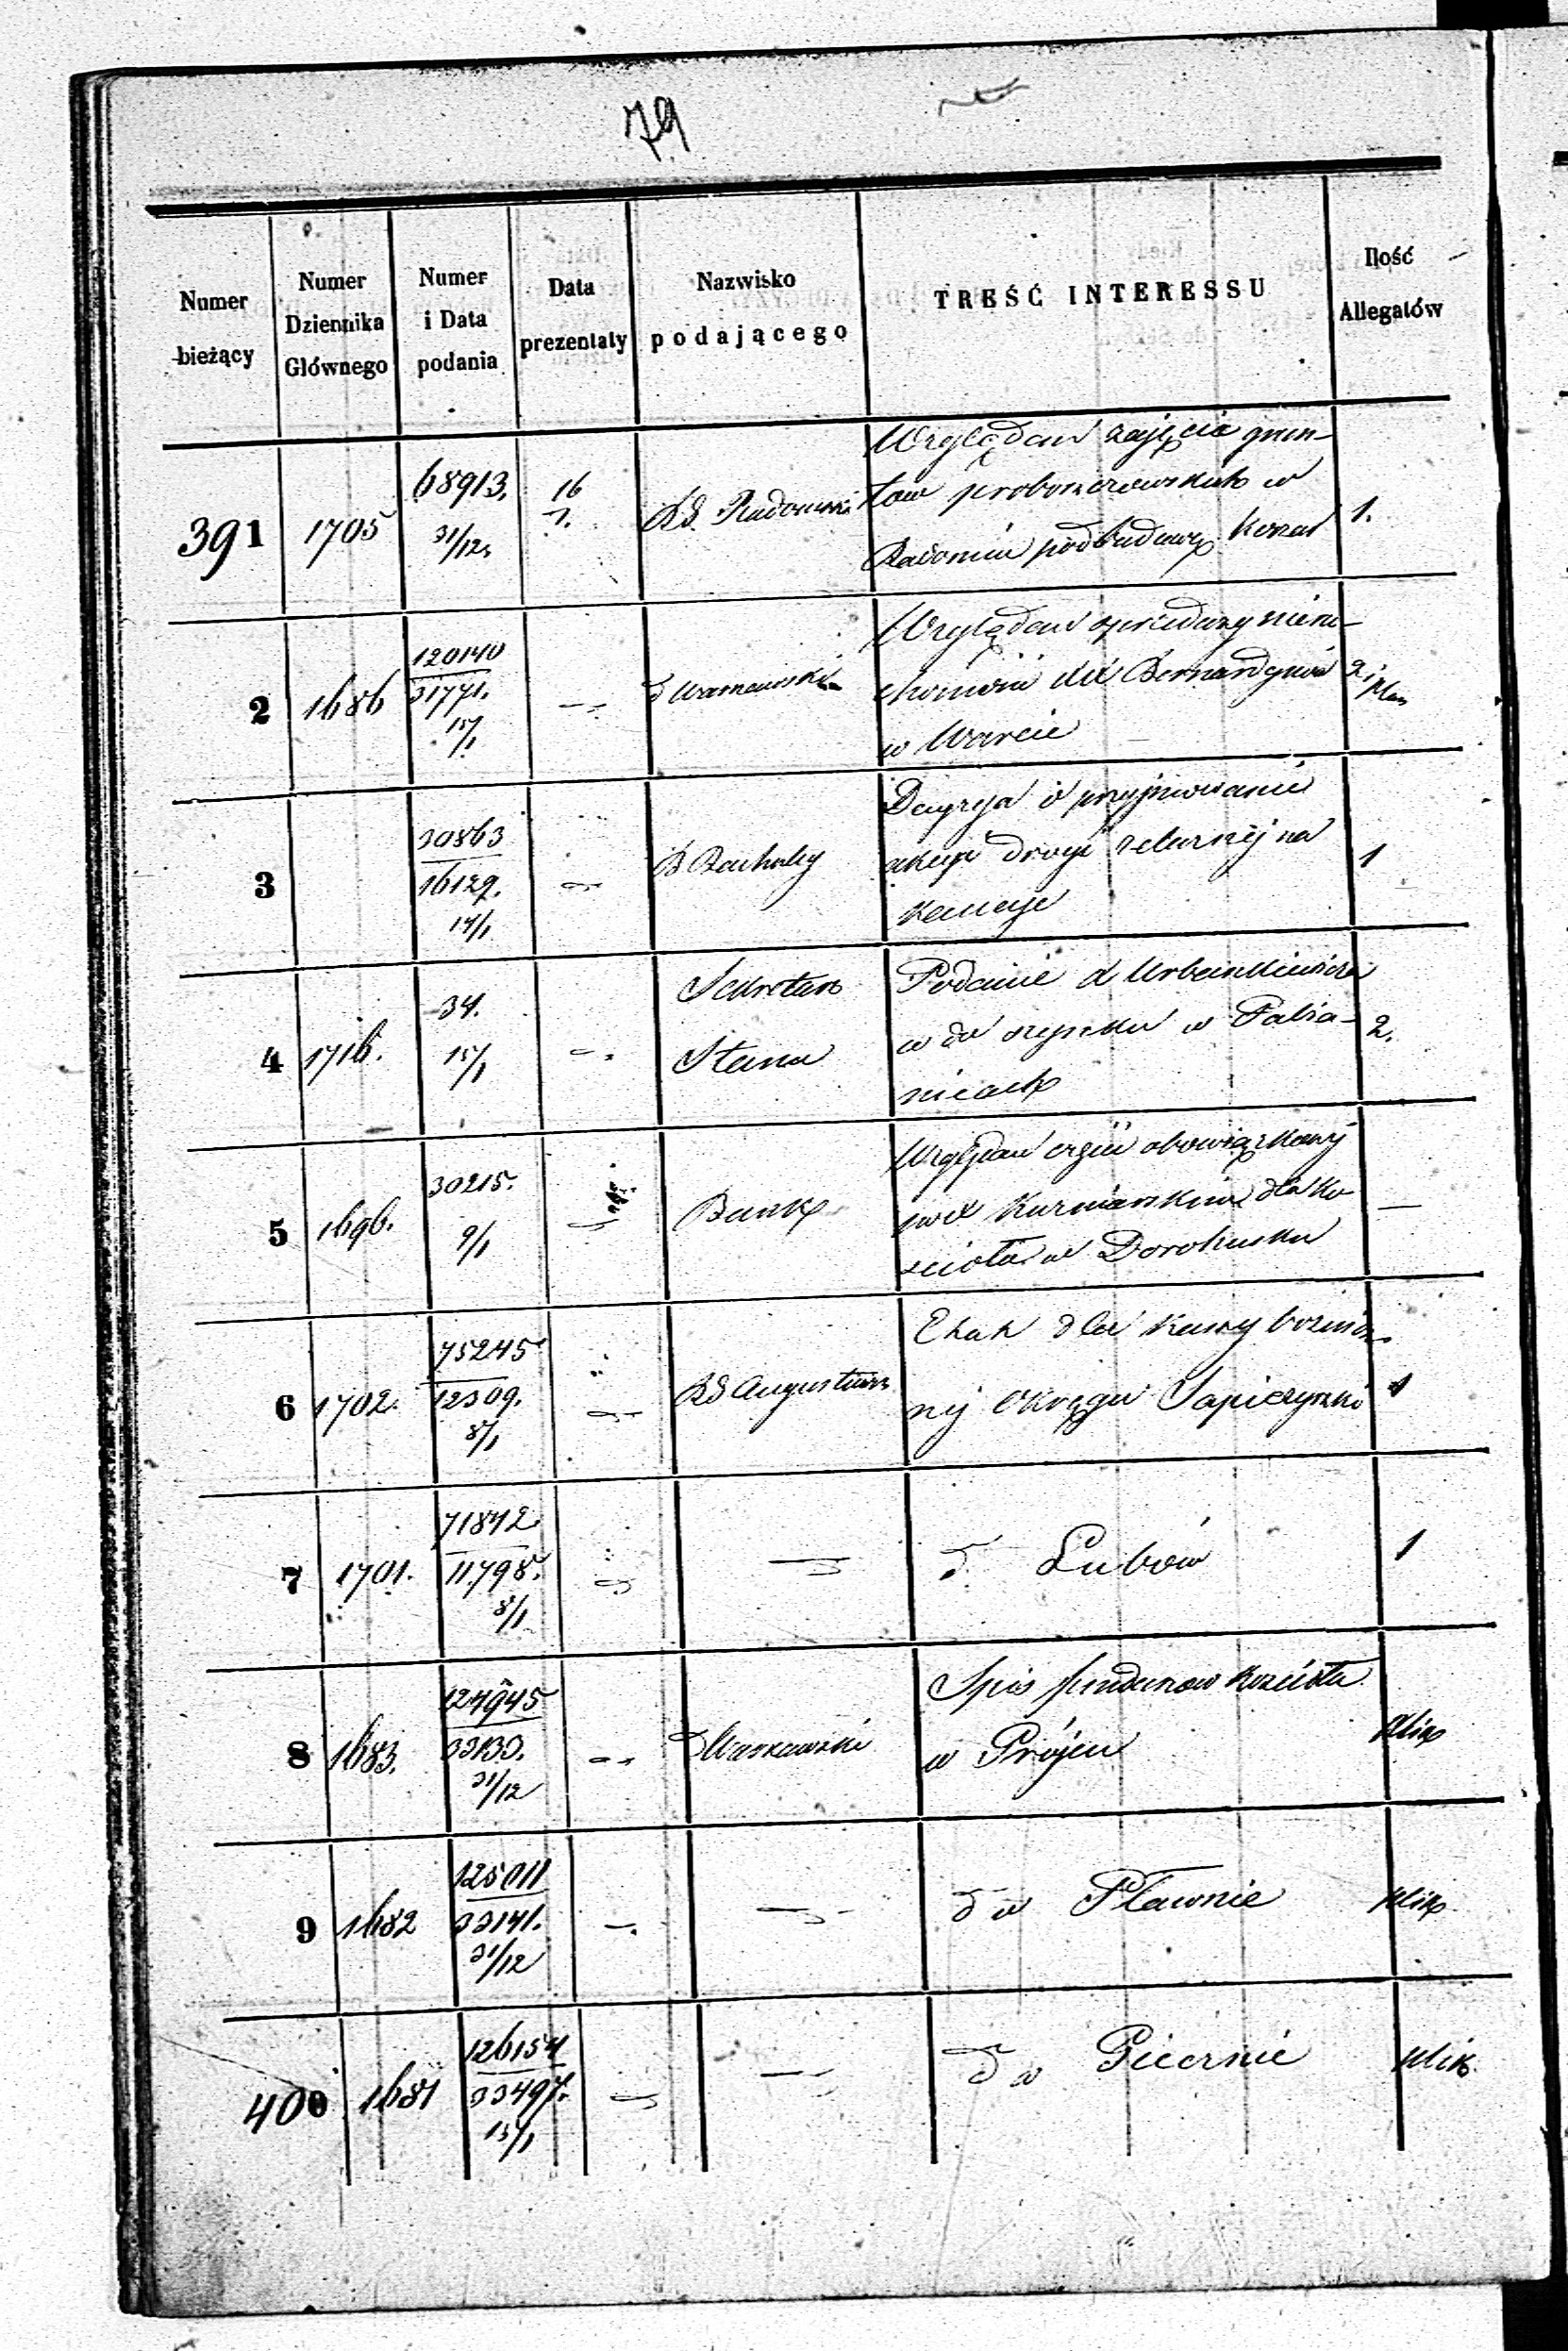 79
Numer bieżący
Numer Dziennika Głównego
Numer i Data podania
Data prezentaty
Nazwisko podającego
TREŚĆ INTERESSU
Ilość Allegatów
391 1705 68913. 31/12. 16 Rd. Radomski Względem zajęcia grun-
tów proboszczowskich w
Radomiu pod budowę Koszar 1.
2 1686 120140 31771. 15/1 d Warszawski Względem sprzedaży nieru-
chomości XX Bernardynów
w Warcie 2 i plan
3 30863 16129. 14/1 Decyzya o przyjmowanie
akcyi drogi żelaznej na
kaucye 1
4 1716. 34. 15/1 Sekretarz Stanu Podanie Urbankiewicza
w Pabia-
nicach 2.
5 1696. 30215. 9/1 Bank Względem obowiązkowej
dla Ko-
ścioła w Dorohusku —
6 1702. 75245 12309. 8/1 Rd Augustows Etat dla Kassy bożnicz
nej Okręgu Sapieżyszki 1
7 1701. 71842 11798. 8/1 d. Lubów 1
8 1683. 124945 33133. 31/12 d Warszawski Spis funduszów Kościoła
w Prójcu plik
9 1682 125011 33141. 31/12 d w Pławnie plik
400 1681 126154 33497. 15/1 d w plik